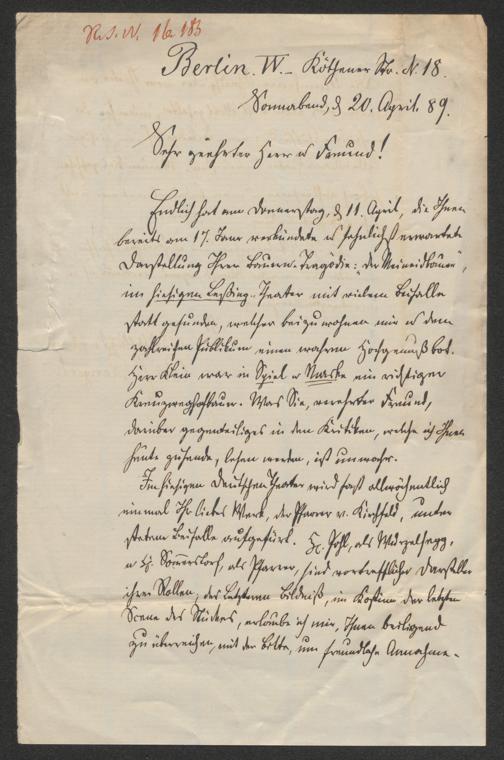 R. J. N. 16 183
Berlin. W. – Köthener Str. N. 18.
Sonnabend, d 20. April. 89.
Sehr geehrter Herr u Freund!
Endlich hat am Donnerstag, d 11. April, die Ihnen
bereits am 17. Janr verkündete u sehnlichst erwartete
Darstellung Ihrer Bauern-Tragödie: „Der Meineidbauer",
im hiesigen Lessing-Theater mit vielem Beifalle
statt gefunden, welcher beizuwohnen mir u dem
zahlreichen Publikum einen wahren Hochgenuß bot.
Herr Klein war in Spiel u Maske ein richtiger
Kreuzweghofbauer. Was Sie, verehrter Freund,
darüber gegenteiliges in den Kritiken, welche ich Ihnen
heute zusende, lesen werden, ist unwahr.
Im hiesigen Deutschen Theater wird fast allwöchentlich
einmal Ihr liebes Werk, der Pfarrer v. Kirchfeld, unter
stetem Beifalle aufgeführt. H. Pohl, als Wurzelsepp,
u H. Sommerstorf, als Pfarrer, sind vortreffliche Darsteller
ihrer Rollen; des Letzteren Bildniß, im Kostüm der letzten
Scene des Stückes, erlaube ich mir, Ihnen beiliegend
zu überreichen, mit der Bitte, um freundliche Annahme.